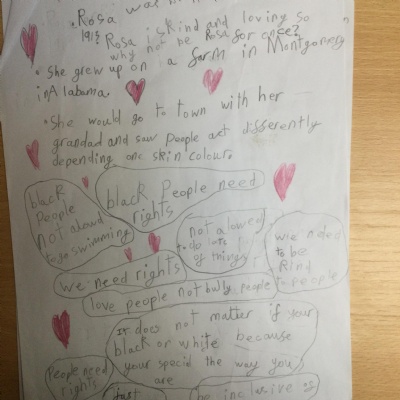 • Rosa was
1913 Rosa is kind and loving so
why not be Rosa for once?
• she grew up on a farm in Montgomery
in Alabama.
• She would go to town with her
grandad and saw people act differently
depending one skin colour.
black
people
not aloud
to go swimming
black People need
rights
not alowed
to do lots
of things
we need
to be
kind
to people
we need rights
love people not bully people
It does not matter if your
black or white because
your special the way you
are
People need
rights
Just
be inclusive